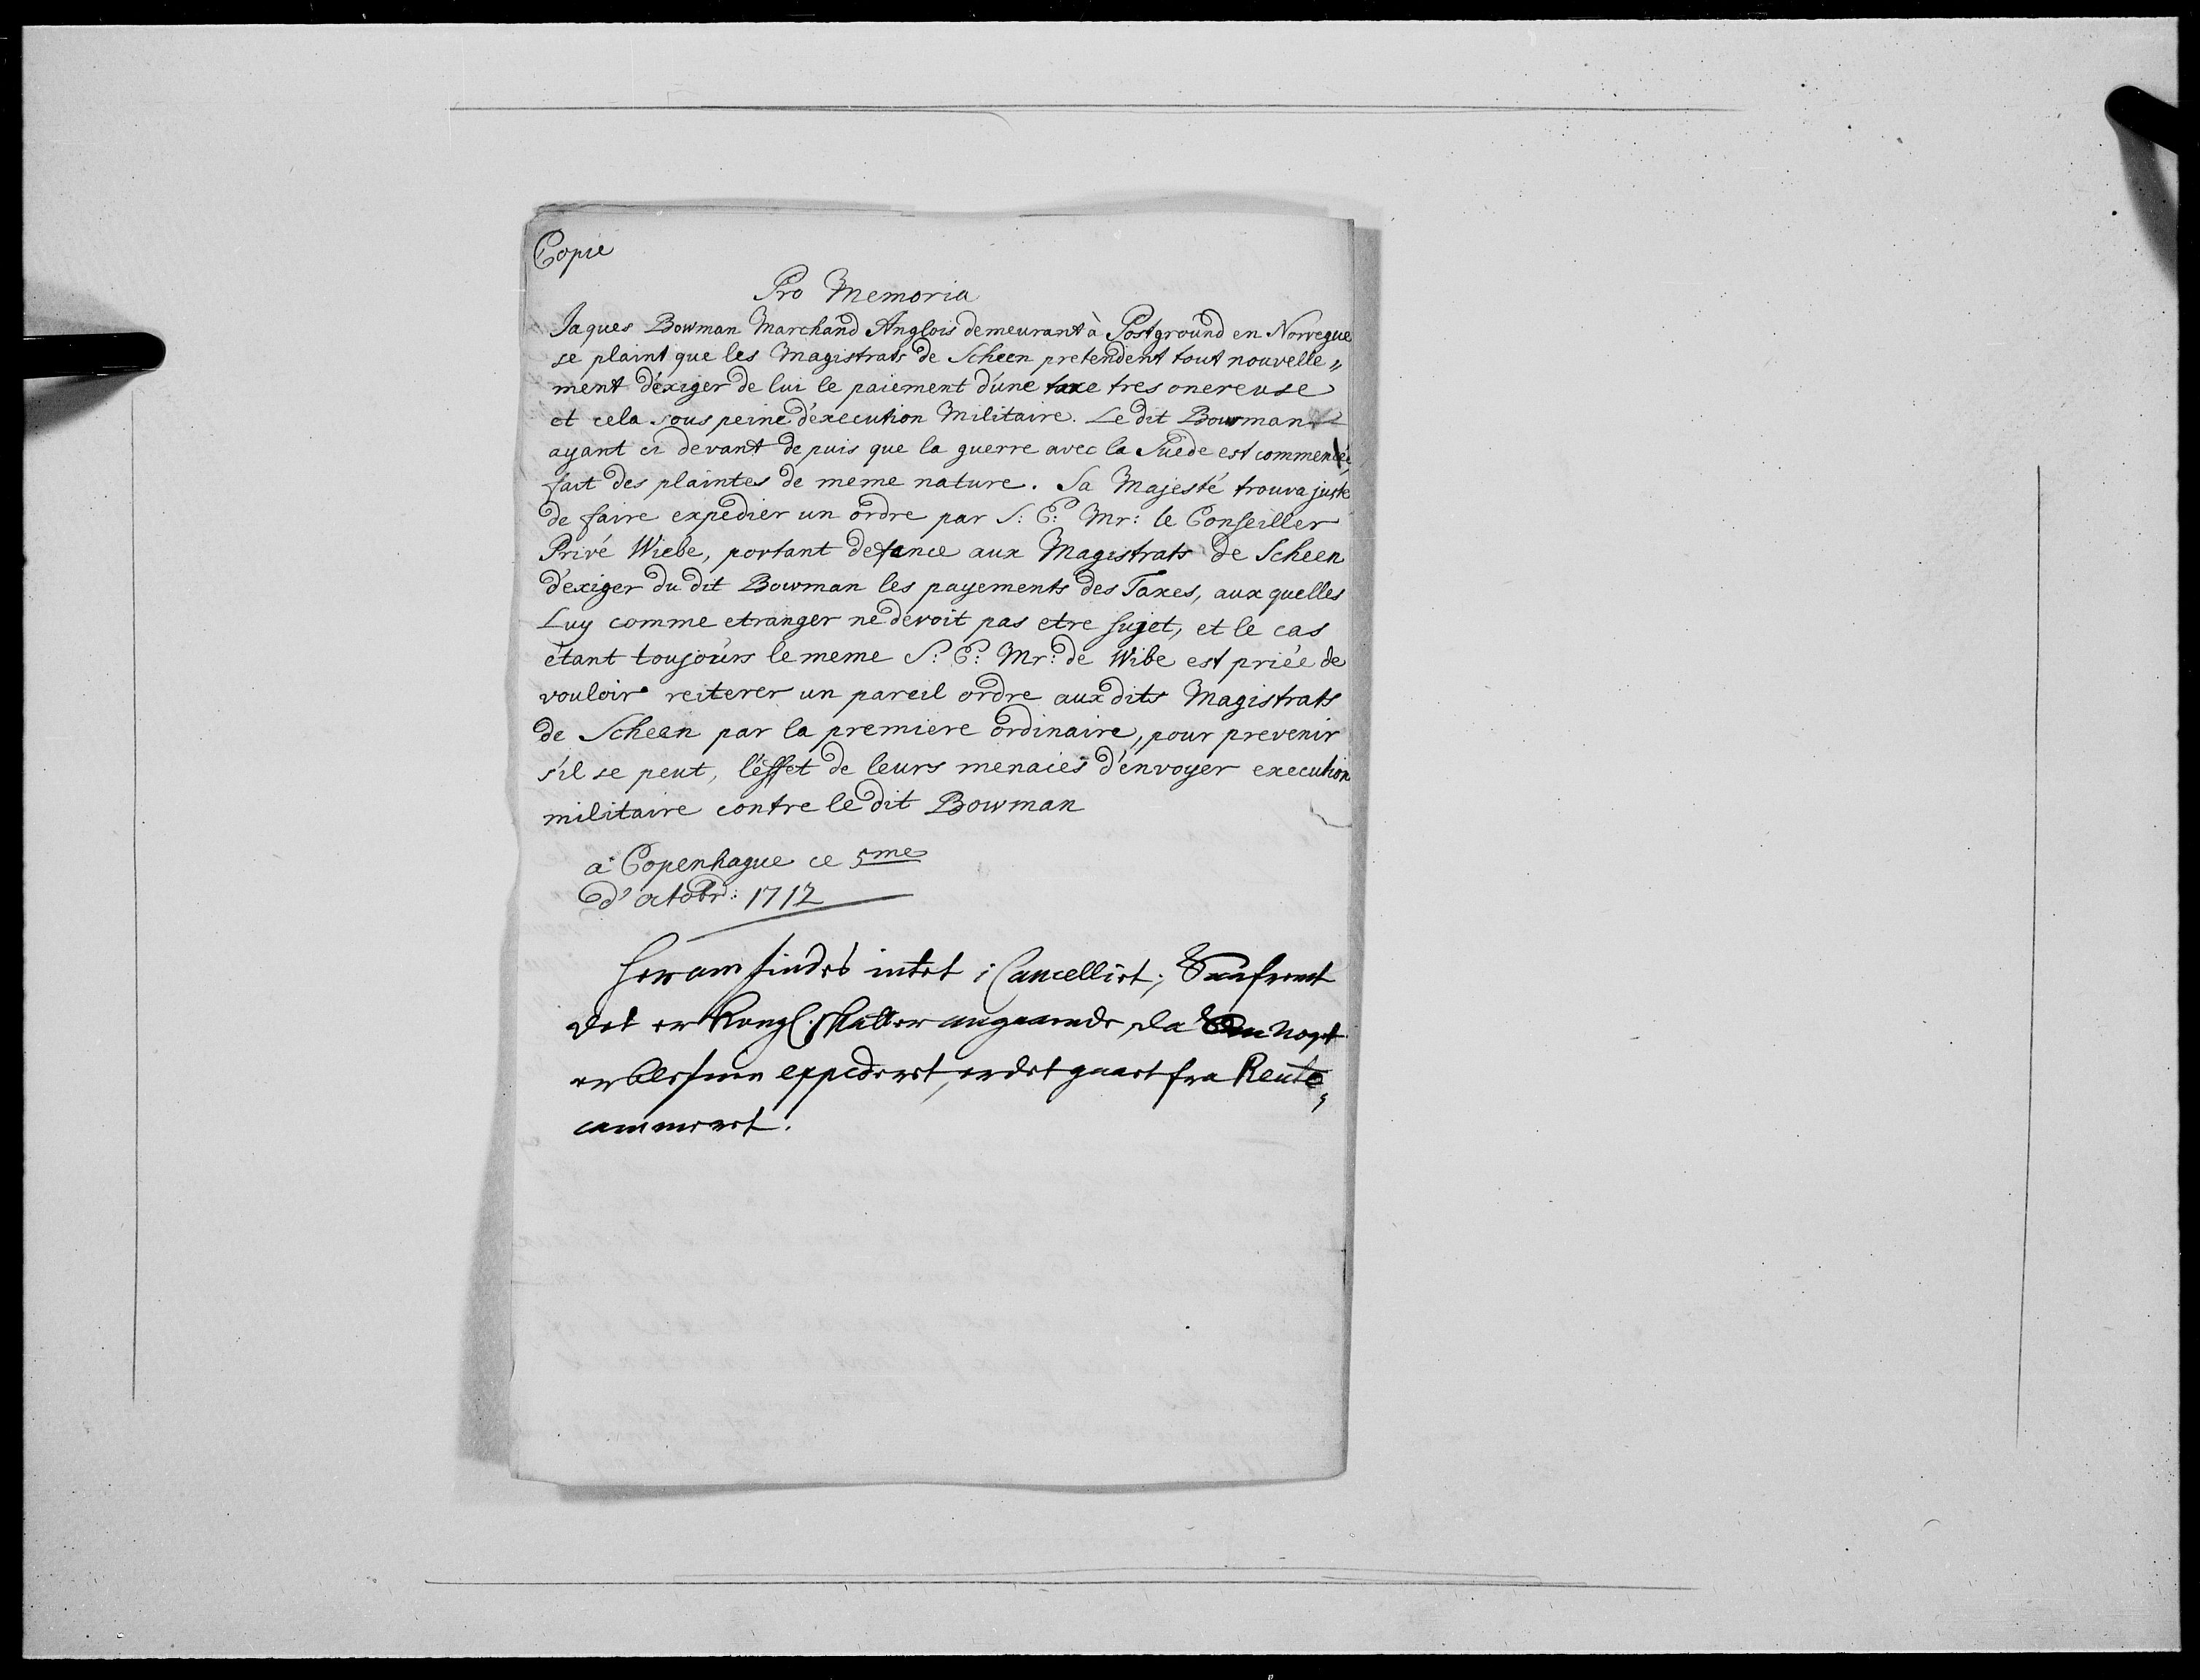 Copie
Pro Memoria
Jaques Bowman Marchand Anglois demeurant à Postground en Norvegue
se plaint que les Magistrats de Scheen pretendent tout nouvelle„
ment d'exiger de lui le paiement d'une taxe tres onereuse
et cela sous peine d'execution Militaire. Le dit Bowman
ayant ci devant depuis que la guerre avec la Suede est commencée
fait des plaintes de meme nature. Sa Majesté trouva juste
de faire expedier un ordre par S: E: Mr: le Conseiller
Privé Wiebe, portant defance aux Magistrats de Scheen
d'exiger du dit Bowman les payements des Taxes, aux quelles
Luy comme etranger ne devoit pas etre sujet, et le cas
étant toujours le meme S: E: Mr: de Wibe est priée de
vouloir reiterer un pareil ordre aux dits Magistrats
de Scheen par la premiere ordinaire, pour prevenir
s'il se peut, l'effet de leurs menaces d'envoyer execution
militaire contre le dit Bowman
à Copenhague ce 5me
d'octobr: 1712
Herom findes intet i Cancelliet,
det er Kongl. Skatter angaaende, da noget
er expederet, er det gaaet fra Rente„
cammeret.